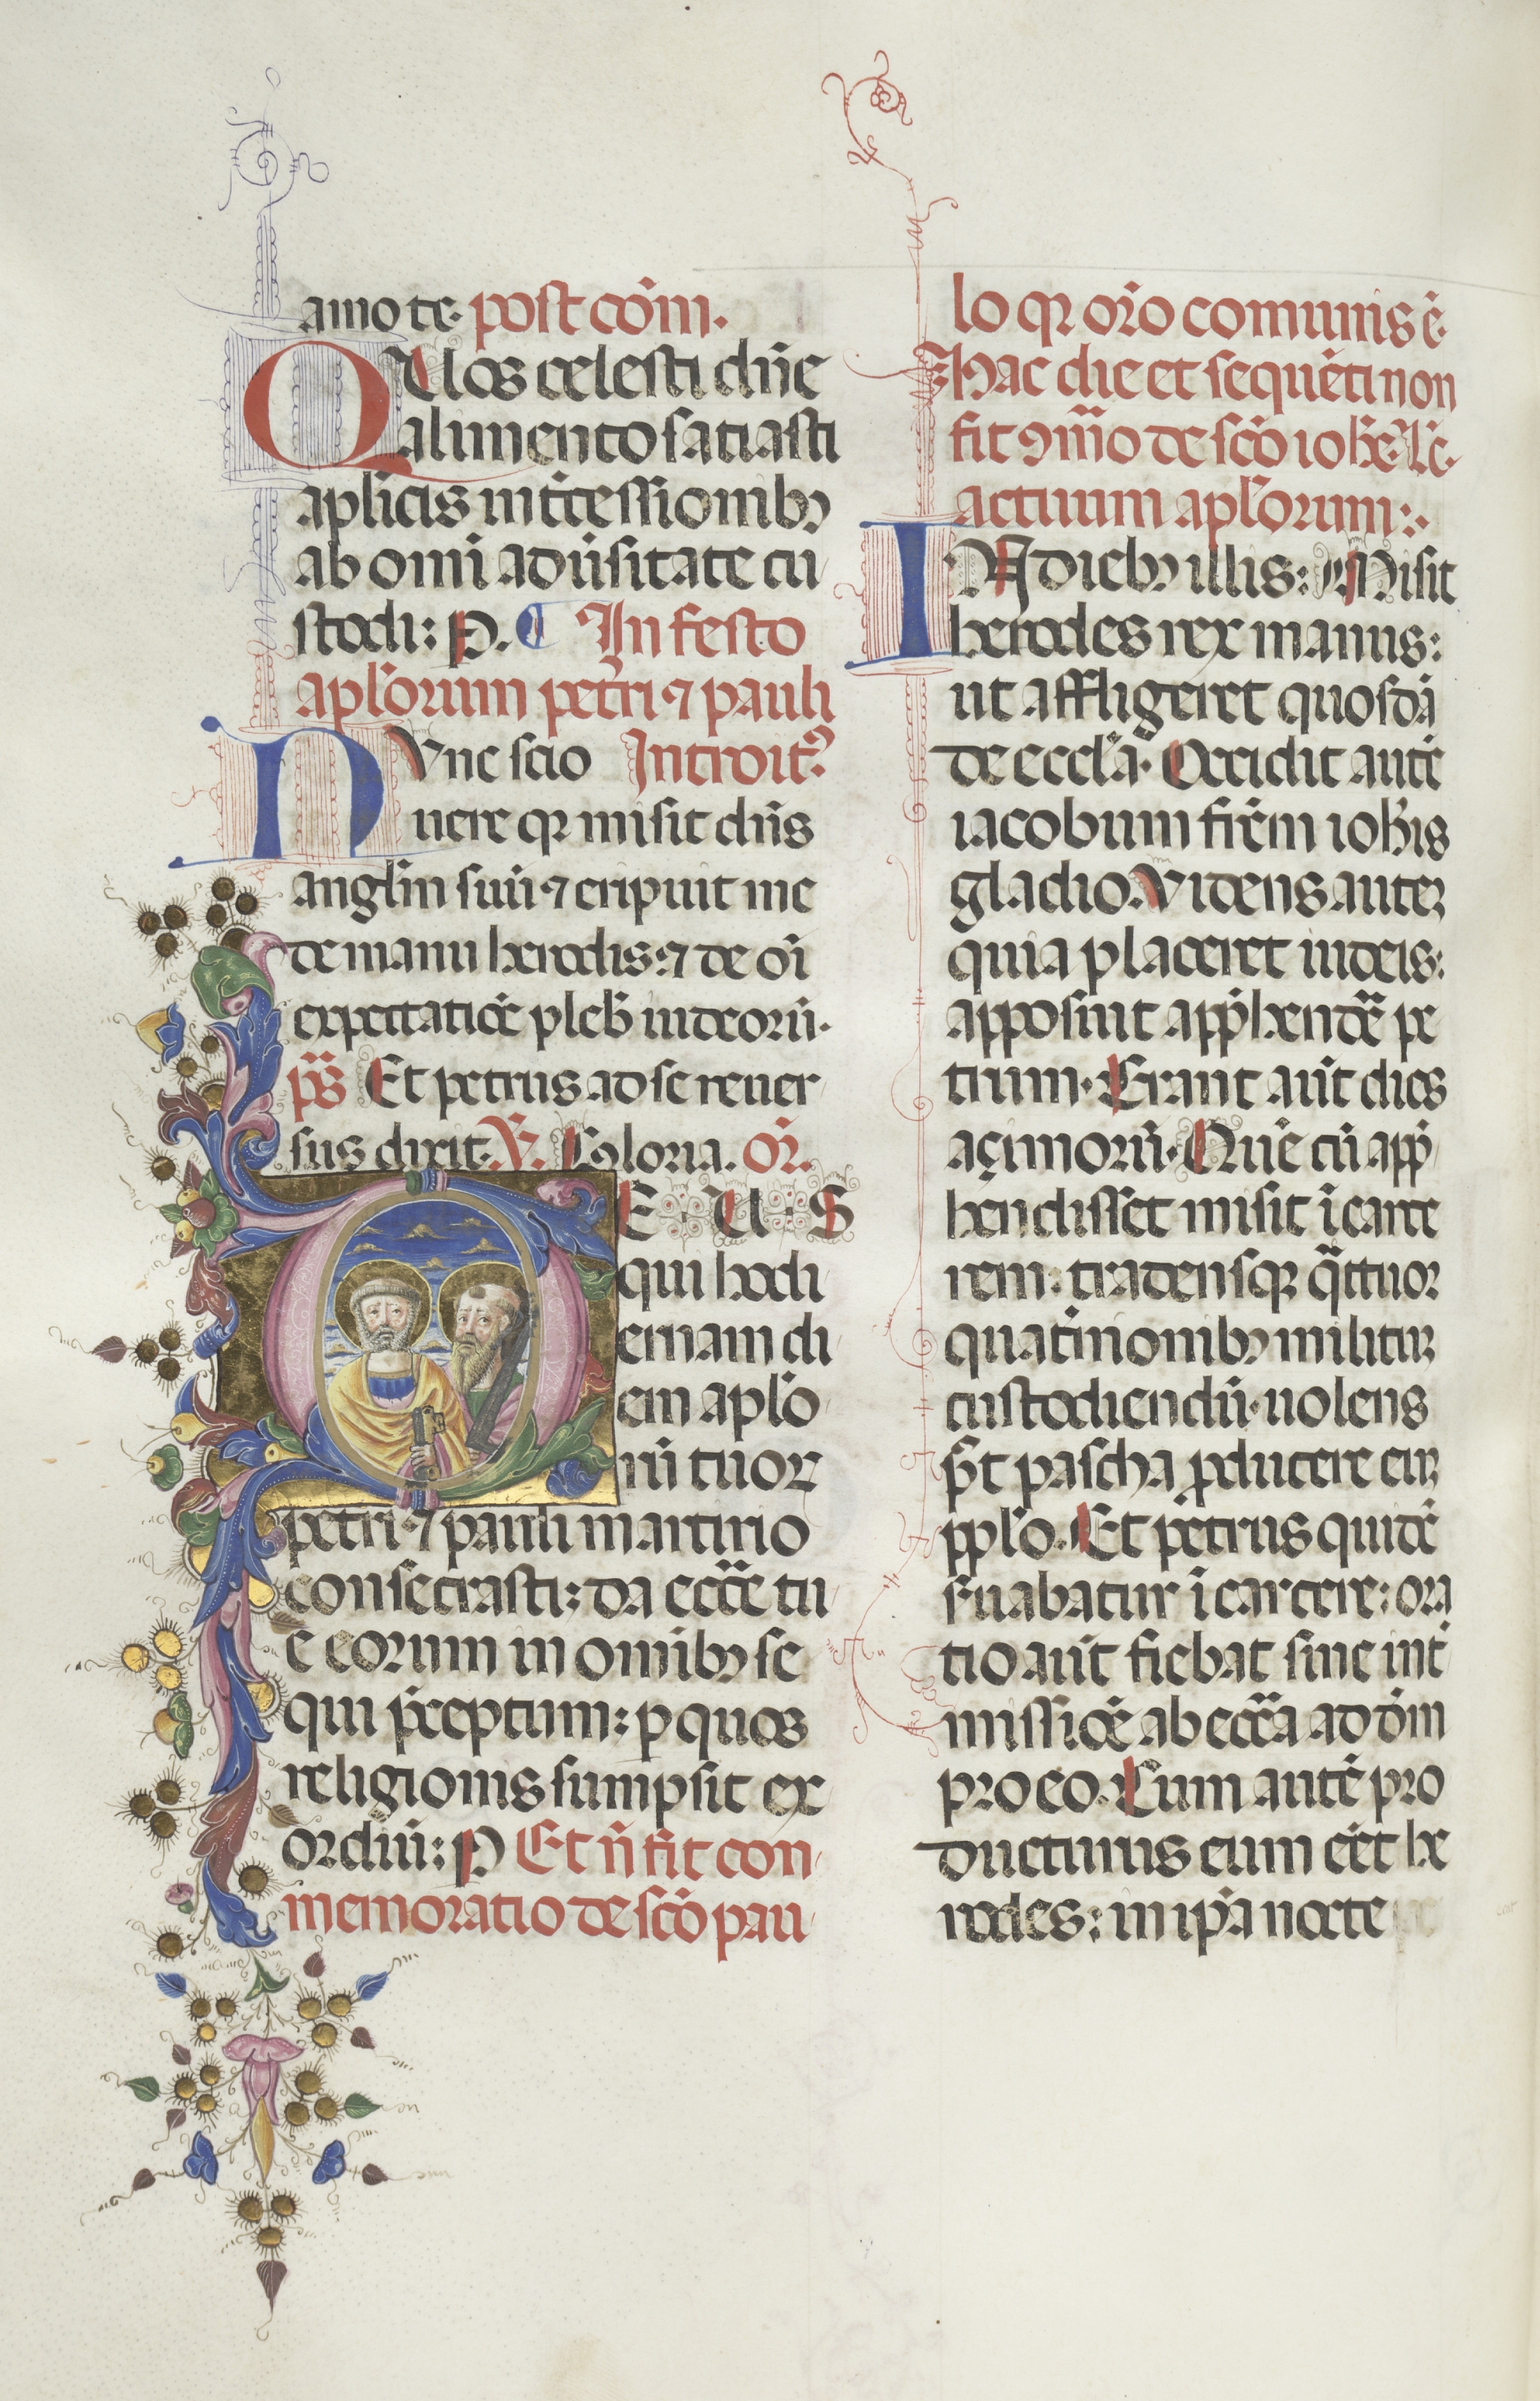 amo te. post cōm.
QUos celesti dn̄e
alimento satiasti
aplicis int̄cessionibꝫ
ab omī adu̇sitate cu
stodi: P. In festo
apl'orum petri ⁊ pauli
NUnc scio Introitꝰ
uere qꝛ misit dn̄s
angl'm suū ⁊ eripuit me
de manu herodis: ⁊ de oī
expectatiōe pleb' iudeorū.
p̄s Et petrus ad se reuer
sus dixit. V. Gloria. Or̄.
DEUS
qui hodi
ernam di
em aplo
rū tuoꝝ
petri ⁊ pauli martirio
consecrasti: da eccīe tu
e eorum in omībꝫ se
qui p̄ceptum: p quos
religionis sumpsit ex
ordiū: P Et n̄ fit con
memoratio de scō pau
lo qꝛ or̄o comunis ē.
Hac die et sequēti non
fit ꝯm̄o de scō ioh̄e. Lc̄.
actuum apl'orum:.
IN diebꝫ illis: Misit
herodes rex manus:
ut affligeret quosdā
de eccl'a. Occidit autē
iacobum fr̄em ioh̄is
gladio. Videns auteꝫ
quia placeret iudeis:
apposuit app̄hendē pe
trum. Erant aūt dies
açimorū. Quē cū app̄
hendisset misit ī carce
rem: tradens qꝛ qᷓttuor
quat̄nionibꝫ militū
custodiendū. uolens
p̄t pascha ꝓducere eū
pplo. Et petrus quidē
s̄uabatur ī carcere: ora
tio aūt fiebat sine int̄
missiōe ab eccīa ad dm̄
pro eo. Cum autē pro
ducturus eum eēt he
rodes: in ip̄a nocte